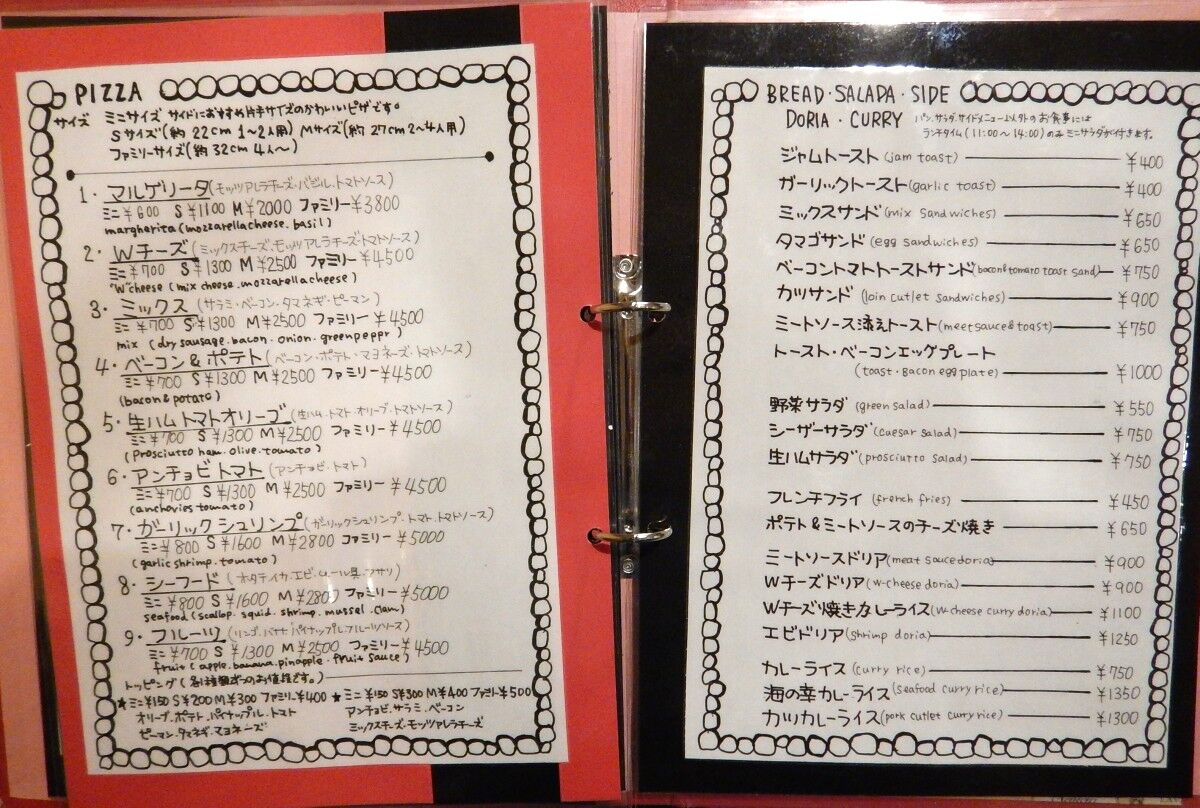 PIZZA
サイズ ミニサイズ サイドにおすすめ片手サイズのかわいいピザです。
Sサイズ(約22cm 1~2人用) Mサイズ(約27cm 2~4人用)
ファミリーサイズ(約32cm 4人~)
1・マルゲリータ(モッツアレラチーズ・バジル・トマトソース)
ミニ¥600 S¥1100 M¥2000 ファミリー¥3800
margherita(mozzarellacheese.basil)
2・Wチーズ(ミックスチーズ.モッツアレラチーズ・トマトソース)
ミニ¥700 S¥1300 M¥2500 ファミリー¥4500
"W"cheese(mix cheese.mozzarellacheese)
3・ミックス(サラミ・ベーコン・タマネギ・ピーマン)
ミニ¥700 S¥1300 M¥2500 ファミリー¥4500
mix (dry sausage.bacon.onion.greenpeppr)
4・ベーコン&ポテト(ベーコン・ポテト・マヨネーズ・トマトソース)
ミニ¥700 S¥1300 M¥2500 ファミリー¥4500
(bacon&potato)
5・生ハムトマトオリーブ(生ハム.トマト・オリーブ・トマトソース)
ミニ¥700 S¥1300 M¥2500 ファミリー¥4500
(Prosciutto ham.olive.tomato)
6・アンチョビトマト(アンチョビ・トマト)
ミニ¥700 S¥1300 M¥2500 ファミリー¥4500
(anchovies tomato)
7・ガーリックシュリンプ(ガーリックシュリンプ・トマト.トマトソース)
ミニ¥800 S¥1600 M¥2800 ファミリー¥5000
(garlic shrimp.tomato)
8・シーフード(ホタテ.イカ.エビ.ムール貝.アサリ)
ミニ¥800 S¥1600 M¥2800 ファミリー¥5000
seafood(scallop.squid.shrimp.mussel.clam)
9・フルーツ(リンゴ.バナナ.パイナップル.フルーツソース)
ミニ¥700 S¥1300 M¥2500 ファミリー¥4500
fruit(apple.banana.pinapple.fruit sauce)
トッピング(各1種類ずつのお値段です。)
★ミニ¥150 S¥200 M¥300 ファミリー¥400 ★ミニ¥150 S¥300 M¥400 ファミリー¥500
オリーブ.ポテト.パイナップル.トマト アンチョビ.サラミ.ベーコン
ピーマン.タマネギ.マヨネーズ ミックスチーズ・モッツァレラチーズ
BREAD・SALADA・SIDE
DORIA・CURRY パン.サラダ.サイドメニュー以外のお食事には
ランチタイム(11:00~14:00)のみミニサラダが付きます。
ジャムトースト(jam toast) ¥400
ガーリックトースト(garlic toast) ¥400
ミックスサンド(mix sandwiches) ¥650
タマゴサンド(egg sandwiches) ¥650
ベーコントマトトーストサンド(bacon&tomato toast sand) ¥750
カツサンド(loin cutlet sandwiches) ¥900
ミートソース添えトースト(meetsauce&toast) ¥750
トースト・ベーコンエッグプレート
(toast・Bacon egg plate) ¥1000
野菜サラダ(green salad) ¥550
シーザーサラダ(cuesar salad) ¥750
生ハムサラダ(prosciutto salad) ¥750
フレンチフライ(french fries) ¥450
ポテト&ミートソースのチーズ焼き ¥650
ミートソースドリア(meat sauce doria) ¥900
Wチーズドリア(w-cheese doria) ¥900
Wチーズ焼きカレーライス(w-cheese curry doria) ¥1100
エビドリア(shrimp doria) ¥1250
カレーライス(curry rice) ¥750
海の幸カレーライス(seafood curry rice) ¥1350
カツカレーライス(pork cutlet curry rice) ¥1300